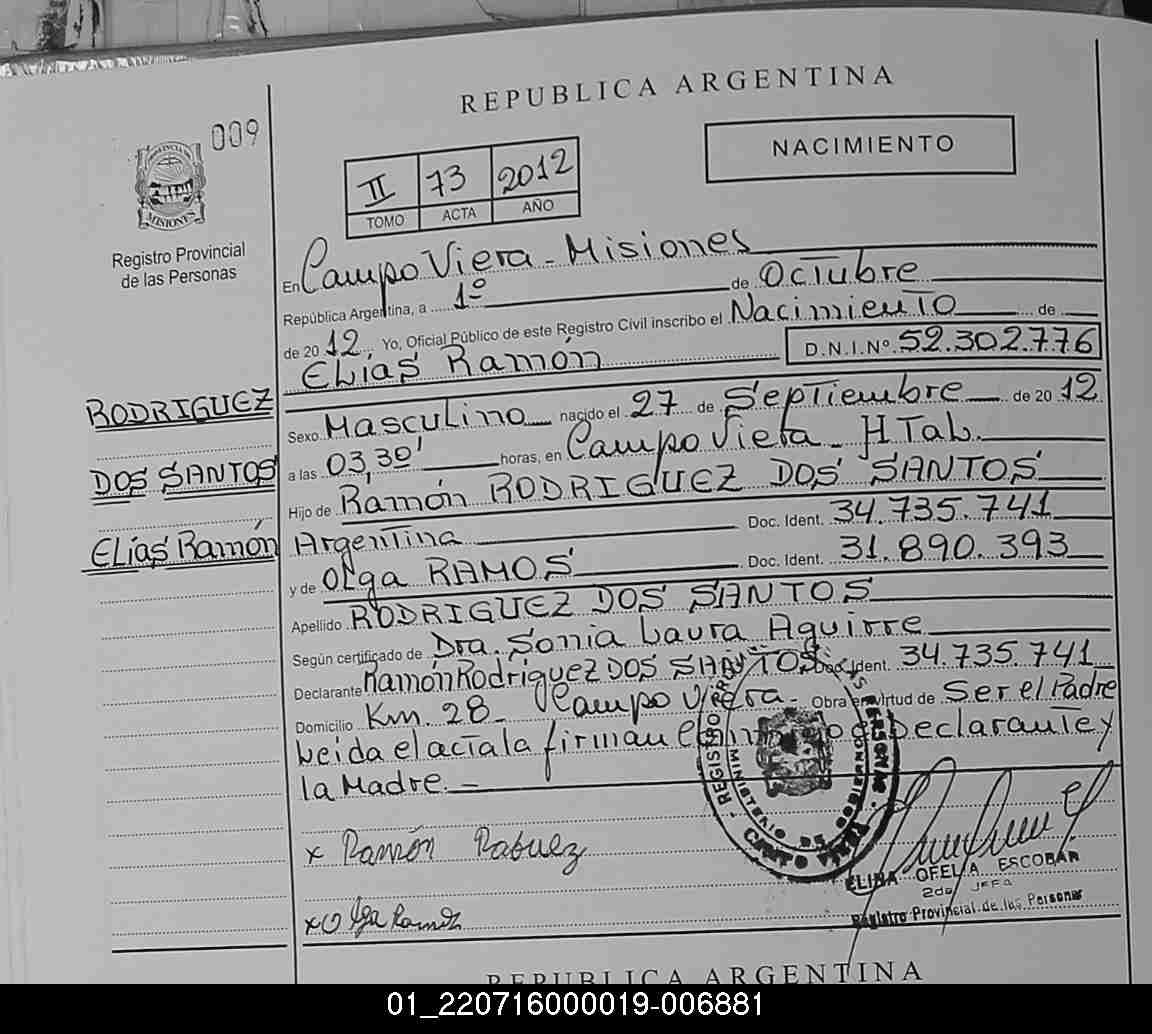 REPUBLICA ARGENTINA
009
NACIMIENTO
II 73 2012
TOMO ACTA AÑO
PROVINCIA DE MISIONES
Registro Provincial
de las Personas
En Campo Viera - Misiones
República Argentina, a 1º de Octubre
de 2012. Yo, Oficial Público de este Registro Civil inscribo el Nacimiento de
Elías Ramón D.N.I.Nº 52.302.776
RODRIGUEZ
DOS SANTOS
Elías Ramón
Sexo Masculino nacido el 27 de Septiembre de 2012
a las 03,30' horas, en Campo Viera - H Tal.
Hijo de Ramón RODRIGUEZ DOS SANTOS
Argentina Doc. Ident. 34.735.741
y de Olga RAMOS Doc. Ident. 31.890.393
Apellido RODRIGUEZ DOS SANTOS
Según certificado de Dra. Sonia Laura Aguirre
Declarante Ramón Rodríguez DOS SANTOS Doc. Ident. 34.735.741
Domicilio Km. 28 - Campo Viera - Obra en virtud de Ser el Padre
Leida el acta la firman Declarante y
la Madre. -
REGISTRO PERSONAS
MINISTERIO DE GOBIERNO
CAMPO VIERA
x Ramón
x Olga Ramos
ELINA OFELIA ESCOBAR
2da JEFA
Registro Provincial de las Personas
REPUBLICA ARGENTINA
01_220716000019-006881